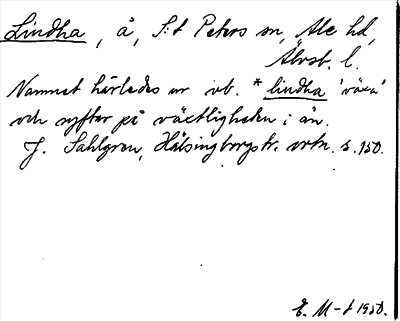 Lindha, å, S:t Peters sn, Ale hd,
Älvsb. l.
Namnet härledes ur vb. *lindha 'växa'
och syftar på växtligheten i ån.
J. Sahlgren, Hälsingborgstr. ortn. s. 150.
E. M-t 1950.